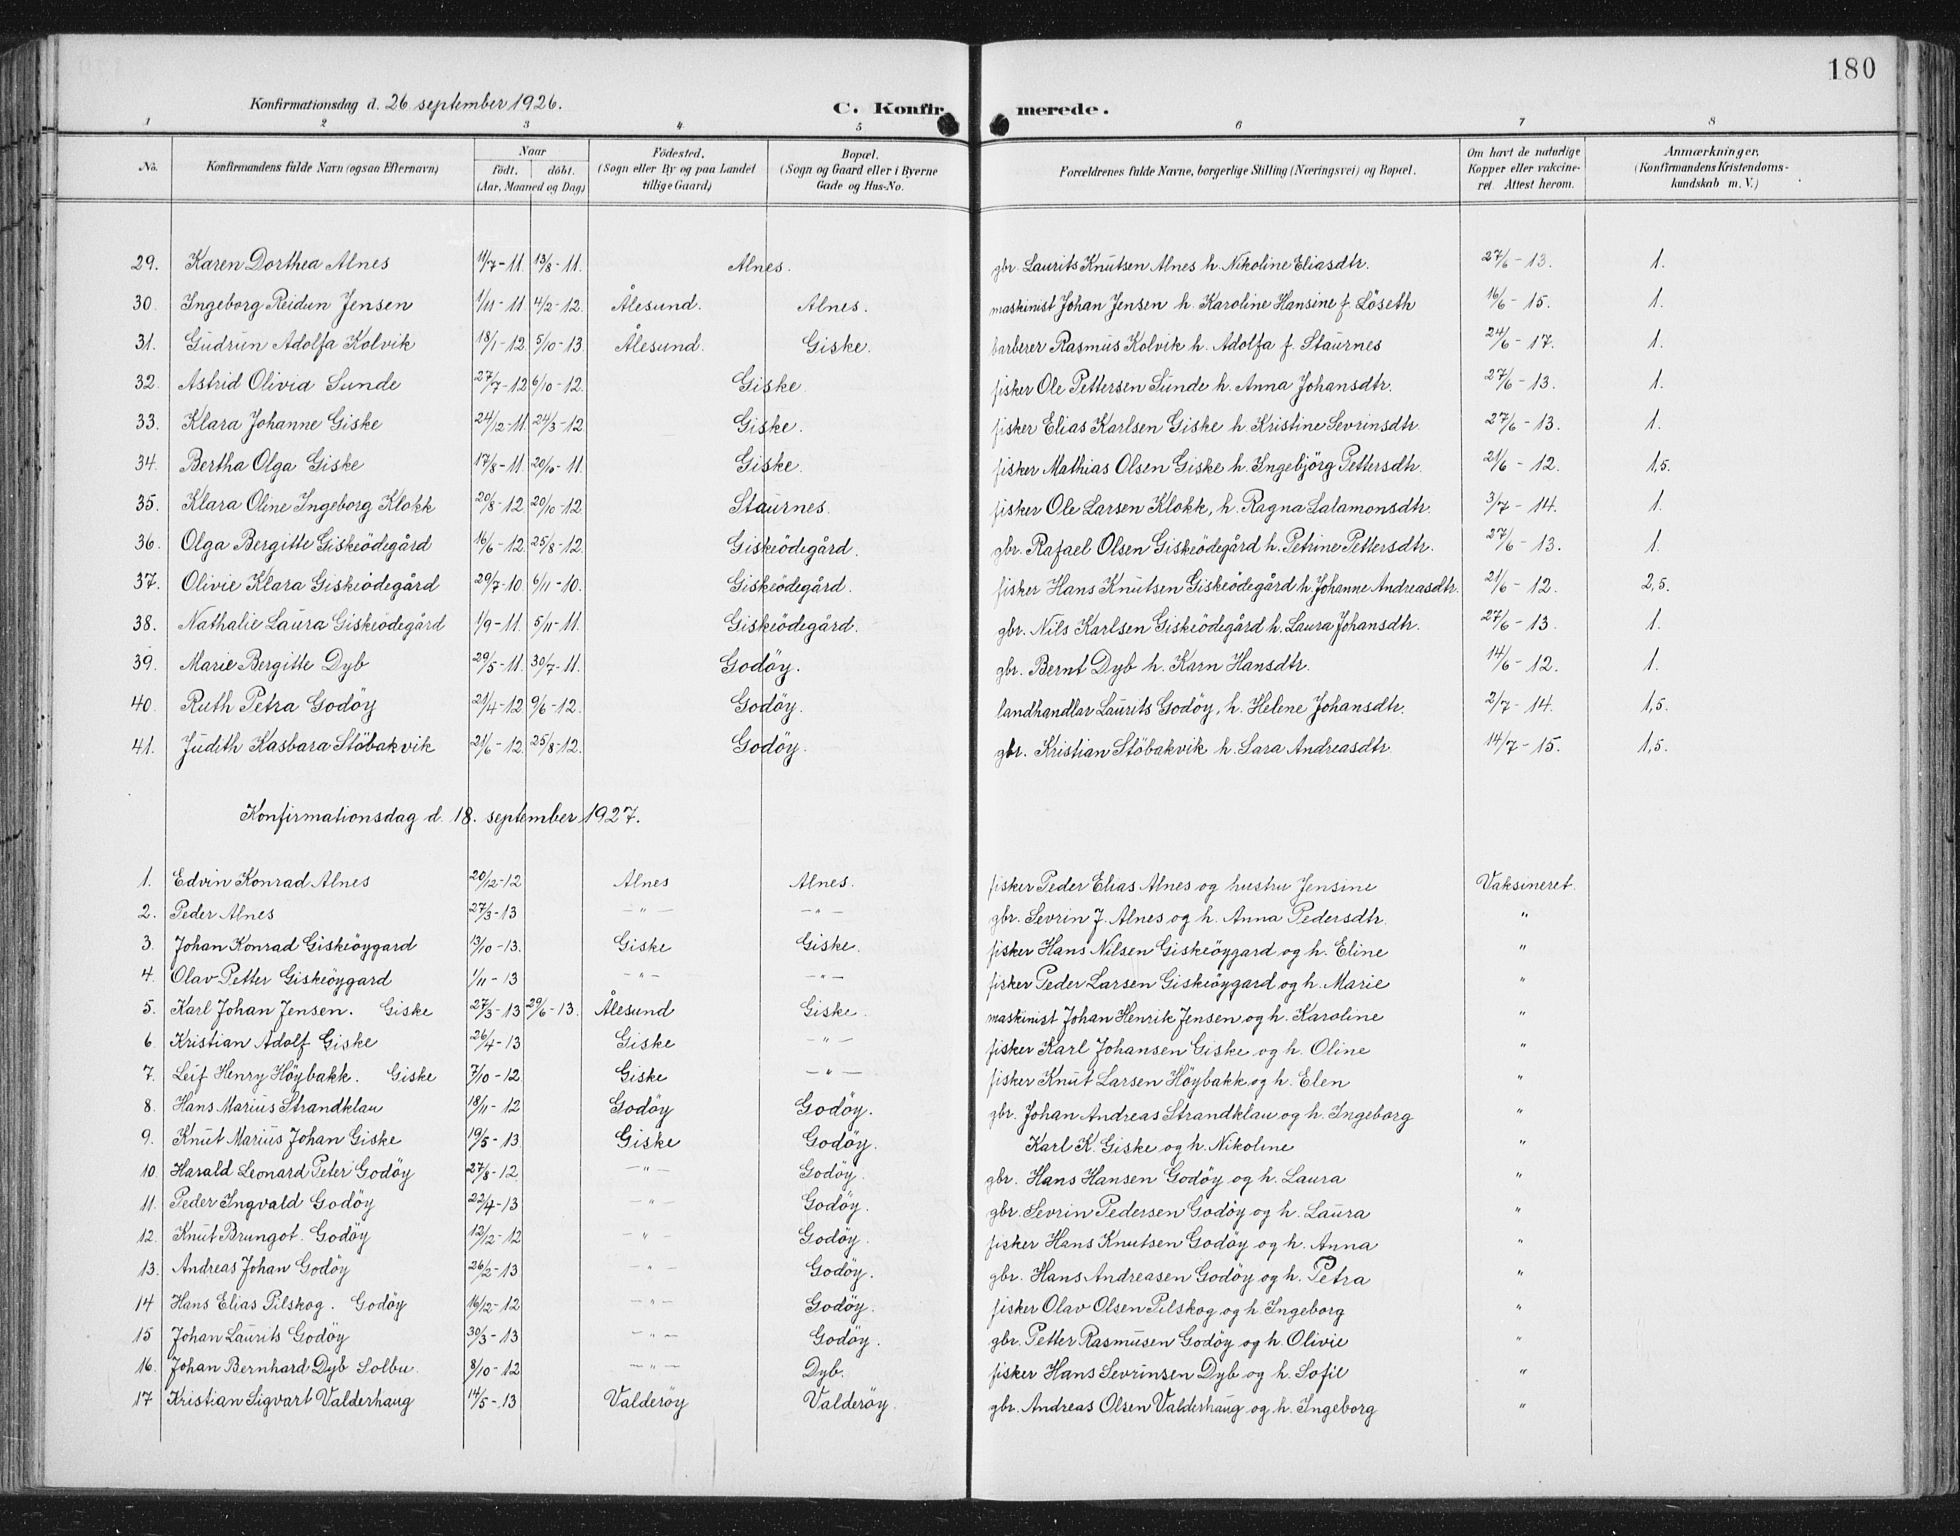 180
Konfirmationsdag d. 26 september 1926. C. Konfirmerede.
1 2 3 4 5 6 7 8
No. Konfirmandens fulde Navn (ogsaa Efternavn) Naar födt. döbt. (Aar, Maaned og Dag) Födested. (Sogn eller By og paa Landet tillige Gaard) Bopæl. (Sogn og Gaard eller i Byerne Gade og Hus-No. Forældrenes fulde Navne, borgerlige Stilling (Næringsvei) og Bopæl. Om havt de naturlige Kopper eller vakcineret. Attest herom. Anmærkninger, (Konfirmandens Kristendomskundskab m. V.)
29. Karen Dorthea Alnes 11/7-11. 13/8-11. Alnes. gbr. Laurits Knutsen Alnes h. Nikoline Eliasdtr. 27/6-13. 1.
30. Ingeborg Reidun Jensen 1/11-11. 4/2-12. Ålesund. Alnes. maskinist Johan Jensen h. Karoline Hansine f. Löseth 16/6-15. 1.
31. Gudrun Adolfa Kolvik 18/1-12. 5/10-13. Ålesund. Giske. barberer Rasmus Kolvik h. Adolfa f. Staurnes 24/6-17. 1.
32. Astrid Olivia Sunde 27/7-12. 6/10-12. Giske fisker Ole Pettersen Sunde h. Anna Johansdtr. 27/6-13. 1.
33. Klara Johanne Giske 24/12-11. 24/3-12 Giske. fisker Elias Karlsen Giske h. Kristine Sevrinsdtr. 27/6-13. 1.
34. Bertha Olga Giske 17/8-11. 20/10-11. Giske. fisker Mathias Olsen Giske h. Ingebjörg Pettersdtr. 21/6-12. 1,5.
35. Klara Oline Ingeborg Klokk 20/8-12. 20/10-12 Staurnes. fisker Ole Larsen Klokk, h. Ragna Salamonsdtr. 3/7-14. 1.
36. Olga Bergitte Giskeödegård 16/6-12. 25/8-12. Giskeödegård. gbr. Rafael Olsen Giskeödegård h. Petrine Pettersdtr. 27/6-13. 1.
37. Olivie Klara Giskeödegård 29/7-10. 6/11-10. Giskeödegård. fisker Hans Knutsen Giskeödegård h. Johanne Andreasdtr. 21/6-12. 2,5.
38. Nathalie Laura Giskeödegård 1/9-11. 5/11-11. Giskeödegård. gbr. Nils Karlsen Giskeödegård h. Laura Johansdtr. 27/6-13. 1.
39. Marie Bergitte Dyb 29/5-11. 30/7-11. Godöy. gbr. Bernt Dyb h. Karn Hansdtr. 14/6-12. 1.
40. Ruth Petra Godöy 21/4-12 9/6-12. Godöy. landhandlar Laurits Godöy, h. Helene Johansdtr. 2/7-14. 1,5.
41. Judith Kasbara Stöbakvik 21/6-12. 25/8-12. Godöy. gbr. Kristian Stöbakvik h. Sara Andreasdtr. 14/7-15. 1,5.
Konfirmationsdag d. 18. september 1927.
1. Edvin Konrad Alnes 20/12-12 Alnes Alnes. fisker Peder Elias Alnes og hustru Jensine Vaksineret.
2. Peder Alnes 27/3-13 -"- -"- gbr. Sevrin J. Alnes og h. Anna Pedersdtr. "
3. Johan Konrad Giskeöygard 13/10-13. Giske Giske. fisker Hans Nilsen Giskeöygard og h. Eline "
4. Olav Petter Giskeöygard 1/11-13 -"- -"- fisker Peder Larsen Giskeöygard og h. Marie "
5. Karl Johan Jensen. Giske 27/3-13 29/6-13. Ålesund Giske. maskinist Johan Henrik Jensen og h. Karoline "
6. Kristian Adolf Giske 26/4-13 Giske -"- fisker Karl Johansen Giske og h. Oline "
7. Leif Henry Höybakk. Giske 7/10-12 Giske -"- fisker Knut Larsen Höybakk og h. Elen "
8. Hans Marius Strandklau 18/11-12 Godöy Godöy. gbr. Johan Andreas Strandklau og h. Ingeborg "
9. Knut Marius Johan Giske 19/5-13. Giske Godöy. Karl K. Giske og h. Nikoline "
10. Harald Leonard Peter Godöy 27/8-12. -"- Godöy. gbr. Hans Hansen Godöy og h. Laura "
11. Peder Ingvald Godöy 22/4-13 -"- Godöy. gbr. Sevrin Pedersen Godöy og h. Laura "
12. Knut Brungot. Godöy 12/12-12 -"- Godöy. fisker Hans Knutsen Godöy og h. Anna "
13. Andreas Johan Godöy 26/2-13 -"- Godöy. gbr. Hans Andreasen Godöy og h. Petra "
14 Hans Elias Pilskog. Godöy 16/12-12 -"- Godöy. fisker Olav Olsen Pilskog og h. Ingeborg "
15 Johan Laurits Godöy 30/3-13 -"- Godöy. gbr. Petter Rasmusen Godöy og h. Olivie "
16. Johan Bernhard Dyb Solbu. 8/10-12 -"- Dyb. fisker Hans Sevrinsen Dyb og h. Sofie "
17 Kristian Sigvart Valderhaug 14/5-13 Valderöy Valderöy. gbr. Andreas Olsen Valderhaug og h. Ingeborg "